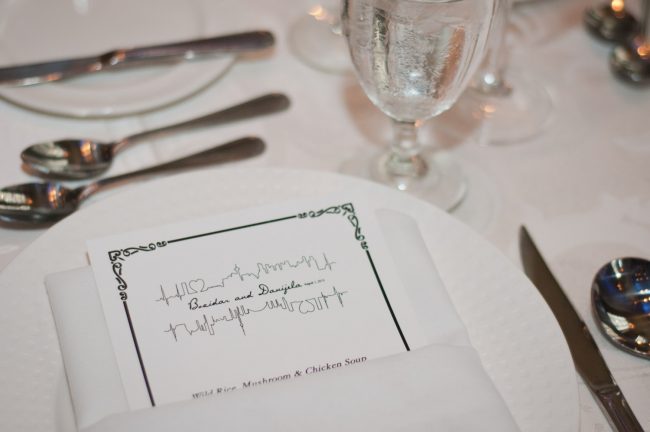 and Danijela
Wild Rice, Mushroom & Chicken Soup